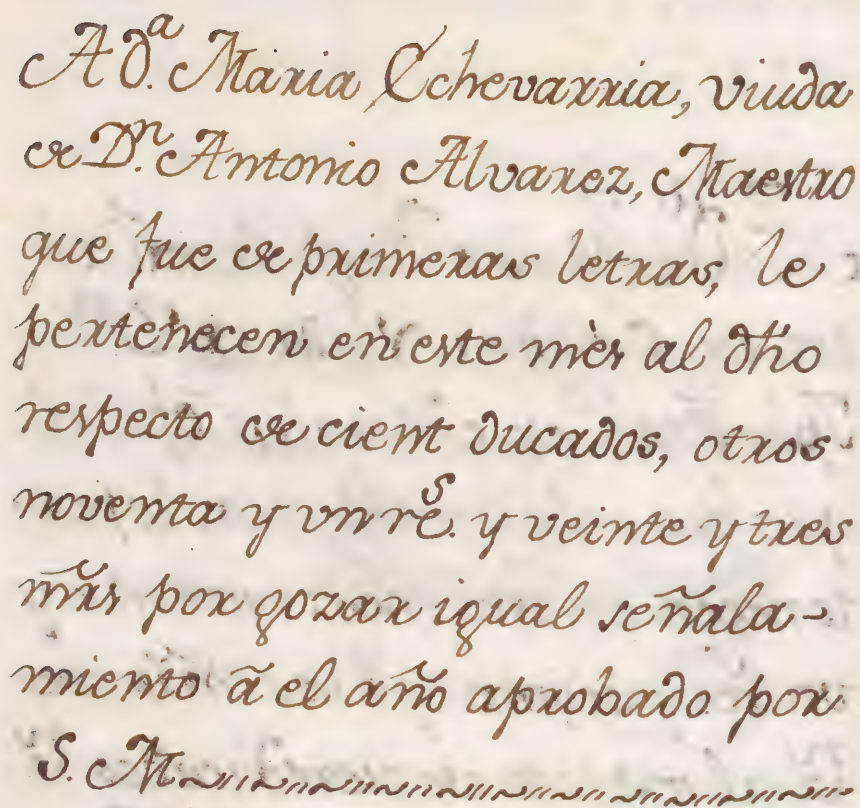 A D.ª Maria Echevarria, viuda
de D.ⁿ Antonio Alvarez, Maestro
que fue de primeras letras, le
pertenecen en este mès al dho
respecto de cient ducados, otros
noventa y vn rˢ. y veinte y tres
mrs por gozar igual señala-
miento ã el año aprobado por
S. M